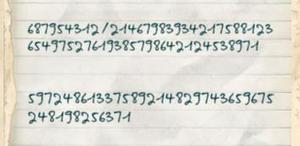 687954312/21467983934217588123
65497527619385798642124538971
5972486133758921482974365967​5
248198256371